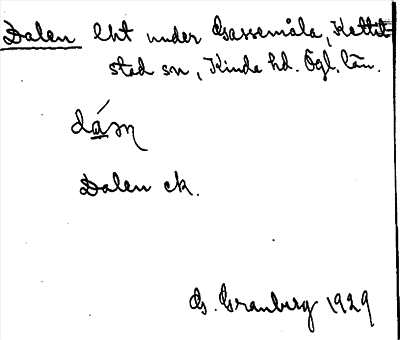 Dalen lht under Gassemåla, Kättil-
stad sn, Kinda hd. Ögl. län.
Dalen ek.
G. Granberg 1929